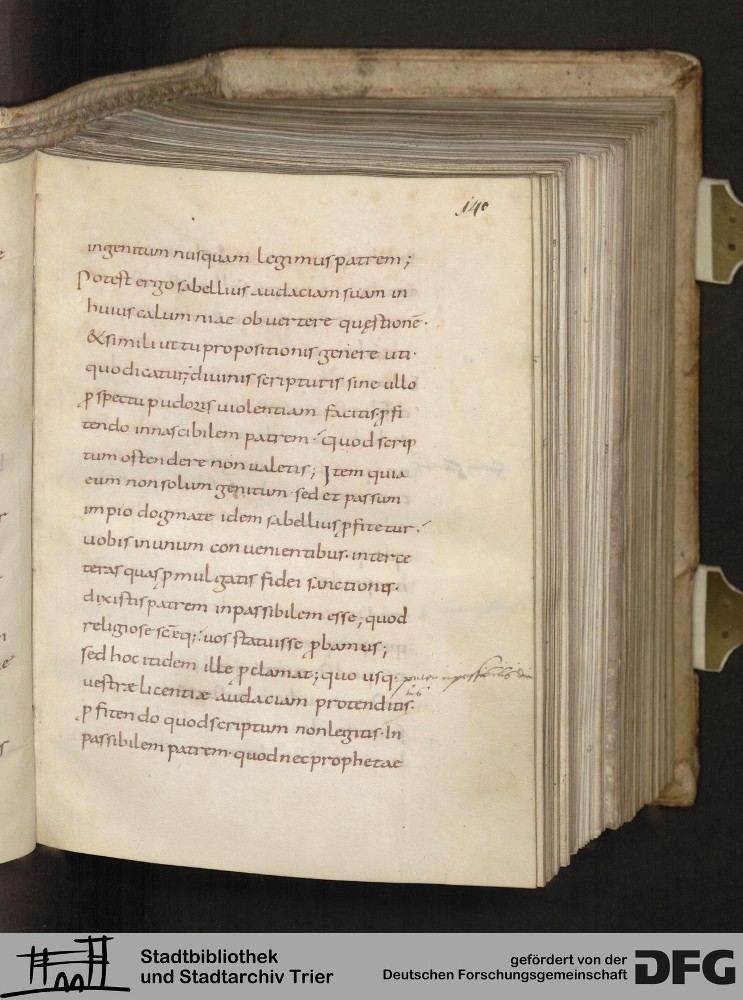 140
ingenitum nusquam legimus patrem;
Potest ergo sabellius audaciam suam in
huius calumniae obuertere quęstionē.
& simili uttu propositionis genere uti.
quo dicatur; diuinis scripturis sine ullo
ꝓspectu pudoris uiolentiam facitis. ꝓfi
tendo innascibilem patrem. quod scrip
tum ostendere non ualetis; Item quia
eum non solum genitum. sed et passum
impio dogmate idem sabellius ꝓfitetur.
uobis in unum conuenientibus. inter ce
teras quas ꝓmulgatis fidei sanctionis.
dixistis patrem inpassibilem esse; quod
religiose scēq; uos statuisse ꝓbamus;
sed hoc itidem ille ꝓclamat; quo usq.
uestrae licentiae audaciam protenditis.
ꝓfitendo quod scriptum non legitis. In
passibilem patrem. quod nec prophetae
Stadtbibliothek
und Stadtarchiv Trier
gefördert von der
Deutschen Forschungsgemeinschaft
DFG